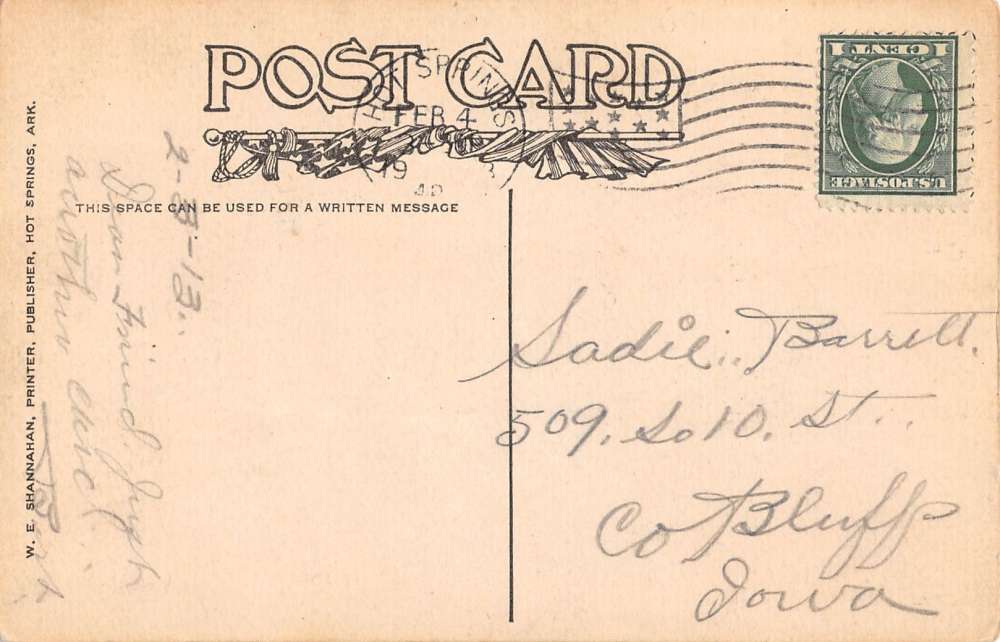 POST CARD
HOT SPRINGS
FEB 4
19
1 CENT 1
U.S. POSTAGE
THIS SPACE CAN BE USED FOR A WRITTEN MESSAGE
W. E. SHANNAHAN, PRINTER, PUBLISHER, HOT SPRINGS, ARK.
2-3-13.
Dear Friend. Just
another one.
Sadie. Barrett.
509. So 10. St.
Co Bluffs
Iowa